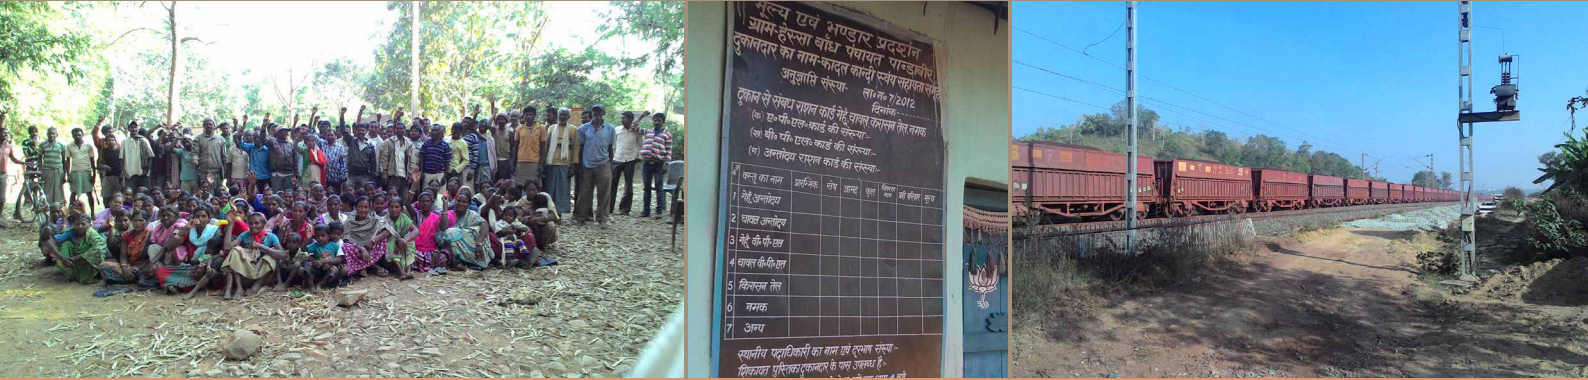 मूल्य एवं भण्डार प्रदर्शन
ग्राम-हेस्सा बाँध पंचायत पान्डाबीर
दुकानदार का नाम-कादल कान्दी स्वंय सहायता समूह
अनुज्ञाप्ति संख्या- ला०न० 7/2012
दिनांक-
दुकान से संबध राशन कार्ड गेहूँ, चावल, करासन तेल, नमक
(क) ए०पी०एल०कार्ड की संख्या:-
(ख) बी०पी०एल०कार्ड की संख्या:-
(ग) अन्तोदय राशन कार्ड की संख्या:-
वस्तु का नाम प्रारम्भिक शेष आमद कुल प्रति परिवार मूल्य
1 गेहूँ अन्तोदय
2 चावल अन्तोदय
3 गेहूँ बी०पी०एल
4 चावल बी०पी०एल
5 किरासन तेल
6 नमक
7 अन्य
स्थानीय पदाधिकारी का नाम एवं दूरभाष संख्या:-
शिकायत पुस्तिका दुकानदार के पास उपलब्ध है:-